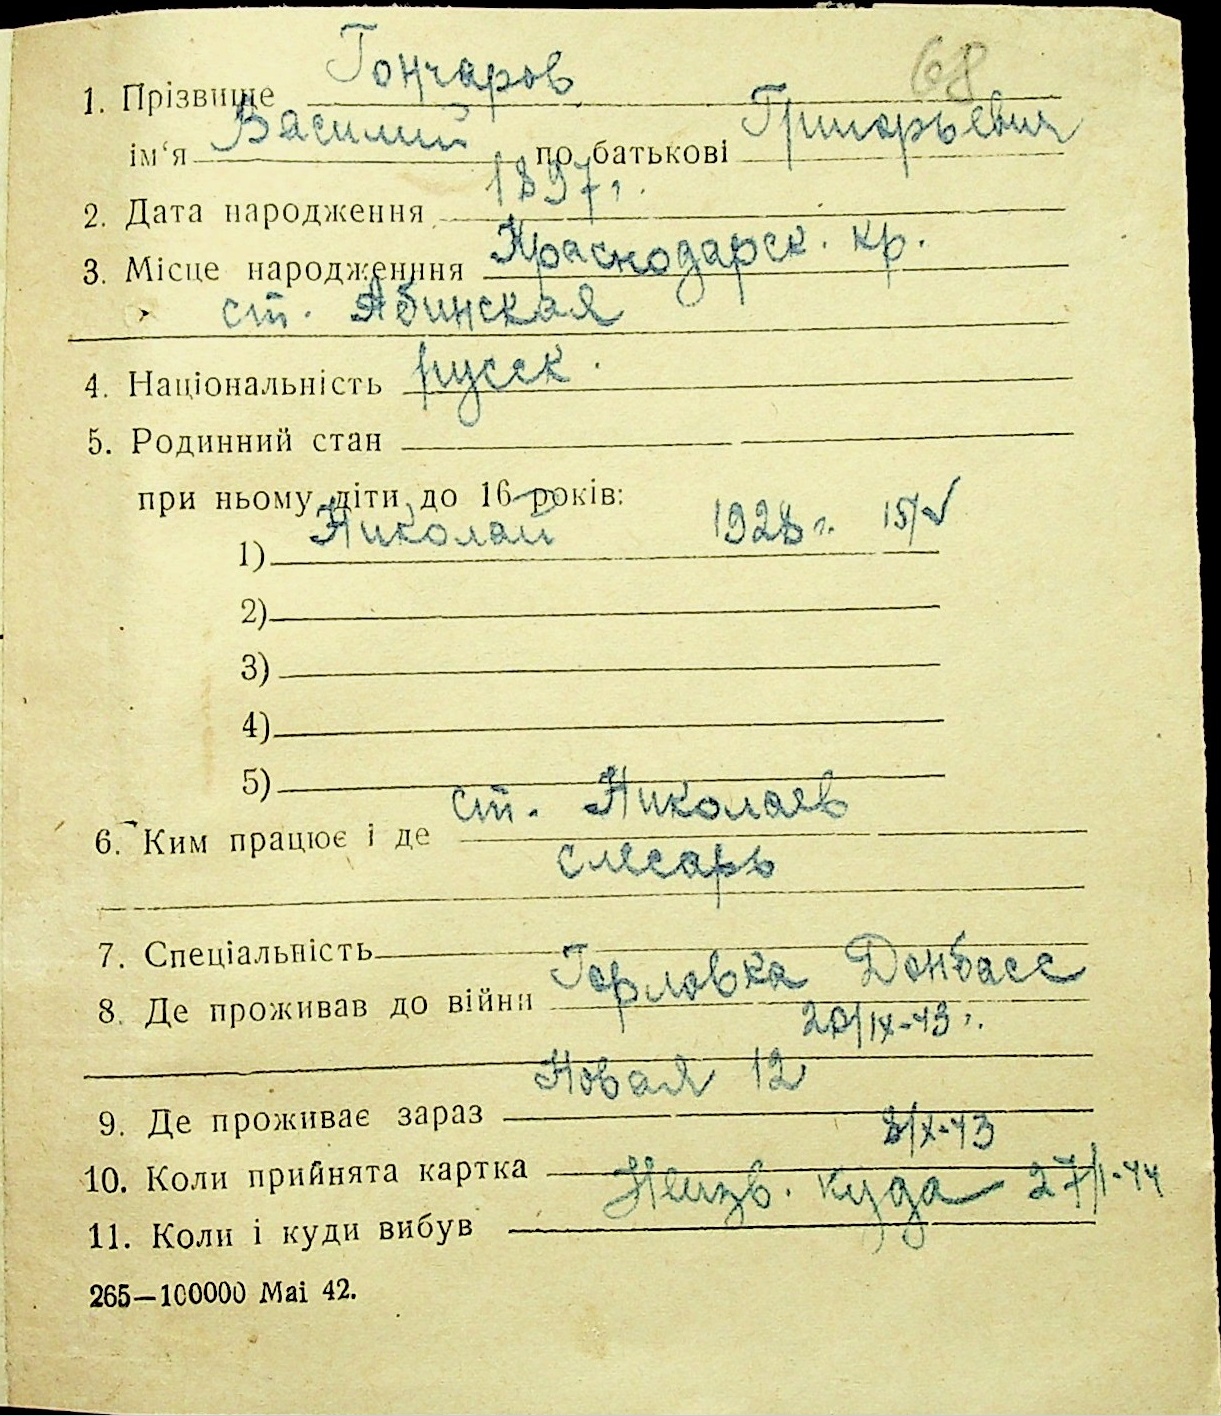 68
1. Прізвище Гончаров
ім'я Василий по батькові Григорьевич
2. Дата народження 1897 г.
3. Місце народженння Краснодарск. кр.
ст. Абинская
4. Національність русск.
5. Родинний стан
при ньому діти до 16 років:
1) Николай 1928 г. 15/V
2)
3)
4)
5)
6. Ким працює і де ст. Николаев
слесарь
7. Спеціальність
8. Де проживав до війни Горловка Донбасс
20/IX-43 г.
9. Де проживає зараз Новая 12
10. Коли прийнята картка 8/X-43
11. Коли і куди вибув Неизв. куда 27/I-44
265—100000 Mai 42.